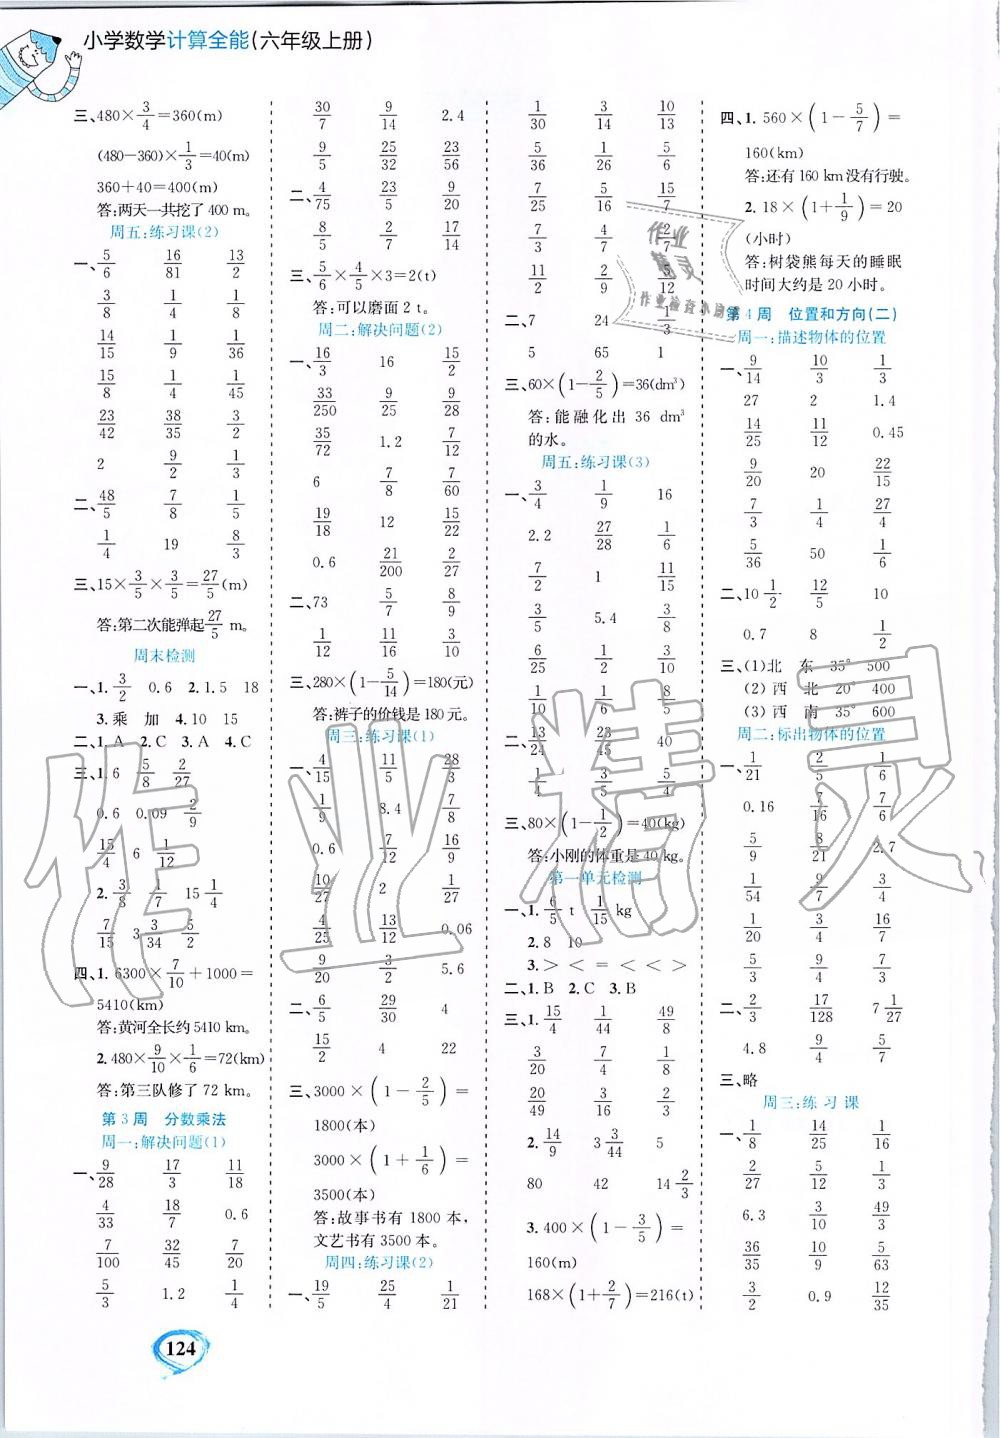 小学数学计算全能(六年级上册)
三、480×3/4=360(m)
(480-360)×1/3=40(m)
360+40=400(m)
答:两天一共挖了 400 m。
周五:练习课(2)
一、5/6 16/81 13/2
3/8 1/4 4/8
14/15 1/9 1/36
15/8 1/4 1/45
23/42 38/35 3/2
2 9/2 1/3
二、48/5 7/8 1/5
1/4 19 8/3
三、15×3/5×3/5=27/5(m)
答:第二次能弹起27/5 m。
周末检测
一、1. 3/2 0.6 2. 1.5 18
3. 乘 加 4. 10 15
二、1. A 2. C 3. A 4. C
三、1. 6 5/8 2/27
0.6 0.09 2/9
15/4 6 1/12
2. 3/8 1/7 15 1/4
7/15 3 3/34 5/2
四、1. 6300×7/10+1000=
5410(km)
答:黄河全长约 5410 km。
2. 480×9/10×1/6=72(km)
答:第三队修了 72 km。
第 3 周 分数乘法
周一:解决问题(1)
一、9/28 17/3 11/18
4/33 18/7 0.6
7/100 32/45 7/20
5/3 1.2 1/4
30/7 9/14 2.4
9/5 25/32 23/56
二、4/75 23/5 9/20
8/5 2/7 17/14
三、5/6×4/5×3=2(t)
答:可以磨面 2 t。
周二:解决问题(2)
一、16/3 16 15/2
33/250 9/25 9/28
35/72 1.2 7/12
6 7/8 7/60
19/18 12 15/22
0.6 21/200 2/27
二、73 5/7 8/9
1/12 11/16 3/10
三、280×(1-5/14)=180(元)
答:裤子的价钱是 180 元。
周三:练习课(1)
一、4/15 11/5 28/3
1/9 8.4 7/8
0.6 7/12 9/10
10/27 2 1/2
4/25 13/12 0.06
9/20 3/2 5.6
二、6/5 29/30 4
15/2 4 22
三、3000×(1-2/5)=
1800(本)
3000×(1+1/6)=
3500(本)
答:故事书有 1800 本,
文艺书有 3500 本。
周四:练习课(2)
一、19/5 25/4 1/21
1/30 3/14 10/13
5/36 1/26 5/6
7/25 5/6 15/7
7/3 4/3 2/7
11/2 2/9 5/12
二、7 24 1/3
5 65 1
三、60×(1-2/5)=36(dm³)
答:能融化出 36 dm³
的水。
周五:练习课(3)
一、3/4 1/9 16
2.2 27/28 1/6
7/2 1 11/15
3/5 5.4 3/8
6/25 1/2 3/10
1/10 6/5 8/9
二、13/24 23/45 40
1/4 4/3 5/4
三、80×(1-1/2)=40(kg)
答:小刚的体重是 40 kg。
第一单元检测
一、1. 6/5 t 1/15 kg
2. 8 10
3. > < = < < <
二、1. B 2. C 3. B
三、1. 15/4 1/44 49/8
3/20 7/4 1/58
20/49 3/16 2/3
2. 14/9 3 3/44 5
80 42 14 2/3
3. 400×(1-3/5)=
160(m)
168×(1+2/7)=216(t)
四、1. 560×(1-5/7)=
160(km)
答:还有 160 km 没有行驶。
2. 18×(1+1/9)=20
(小时)
答:树袋熊每天的睡眠
时间大约是 20 小时。
第 4 周 位置和方向(二)
周一:描述物体的位置
一、9/14 10/3 1/3
27 2 1.4
14/25 11/12 0.45
9/20 20 22/15
7/3 1/4 27/4
5/36 50 1/6
二、10 1/2 12/5 10
0.7 8 1/2
三、(1)北 东 35° 500
(2)西 北 20° 400
(3)西 南 35° 600
周二:标出物体的位置
一、1/21 2/5 1/6
0.16 7/16 7/6
5/9 8/21 2.7
1/54 9/2 3/4
1/20 4/3 9/4
5/3 9/4 3/5
二、2/3 17/128 7 1/27
4.8 9/4 5/7
三、略
周三:练习课
一、1/8 14/25 1/16
2/27 5/12 1/3
6.3 3/10 49/3
36/35 10/9 63/5
3/2 0.9 12/35
124
作业精灵
作业精灵